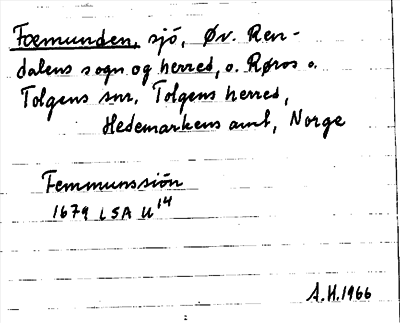 Fæmunden, sjö, Øv. Ren-
dalens sogn og herred, o. Røros o.
Tolgens snr, Tolgens herred,
Hedemarkens amt, Norge
Femmunssiön
1679 LSA U 14
A.H. 1966